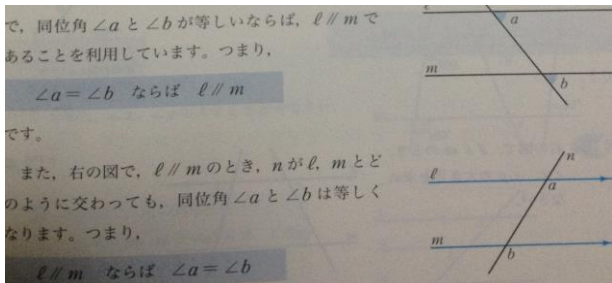 で，同位角∠aと∠bが等しいならば，ℓ∥mで
あることを利用しています。つまり，
∠a＝∠b　ならば　ℓ∥m
です。
また，右の図で，ℓ∥mのとき，nがℓ，mとど
のように交わっても，同位角∠aと∠bは等しく
なります。つまり，
ℓ∥m　ならば　∠a＝∠b
a
m
b
n
ℓ
a
m
b